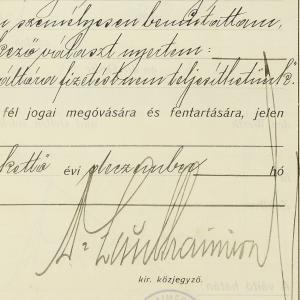 személyesen bemutattam,
kező választ nyertem:
váltóra fizetést nem teljesíthetünk".
fél jogai megóvására és fentartására, jelen
kettő évi deczember hó
Dr
kir. közjegyző.